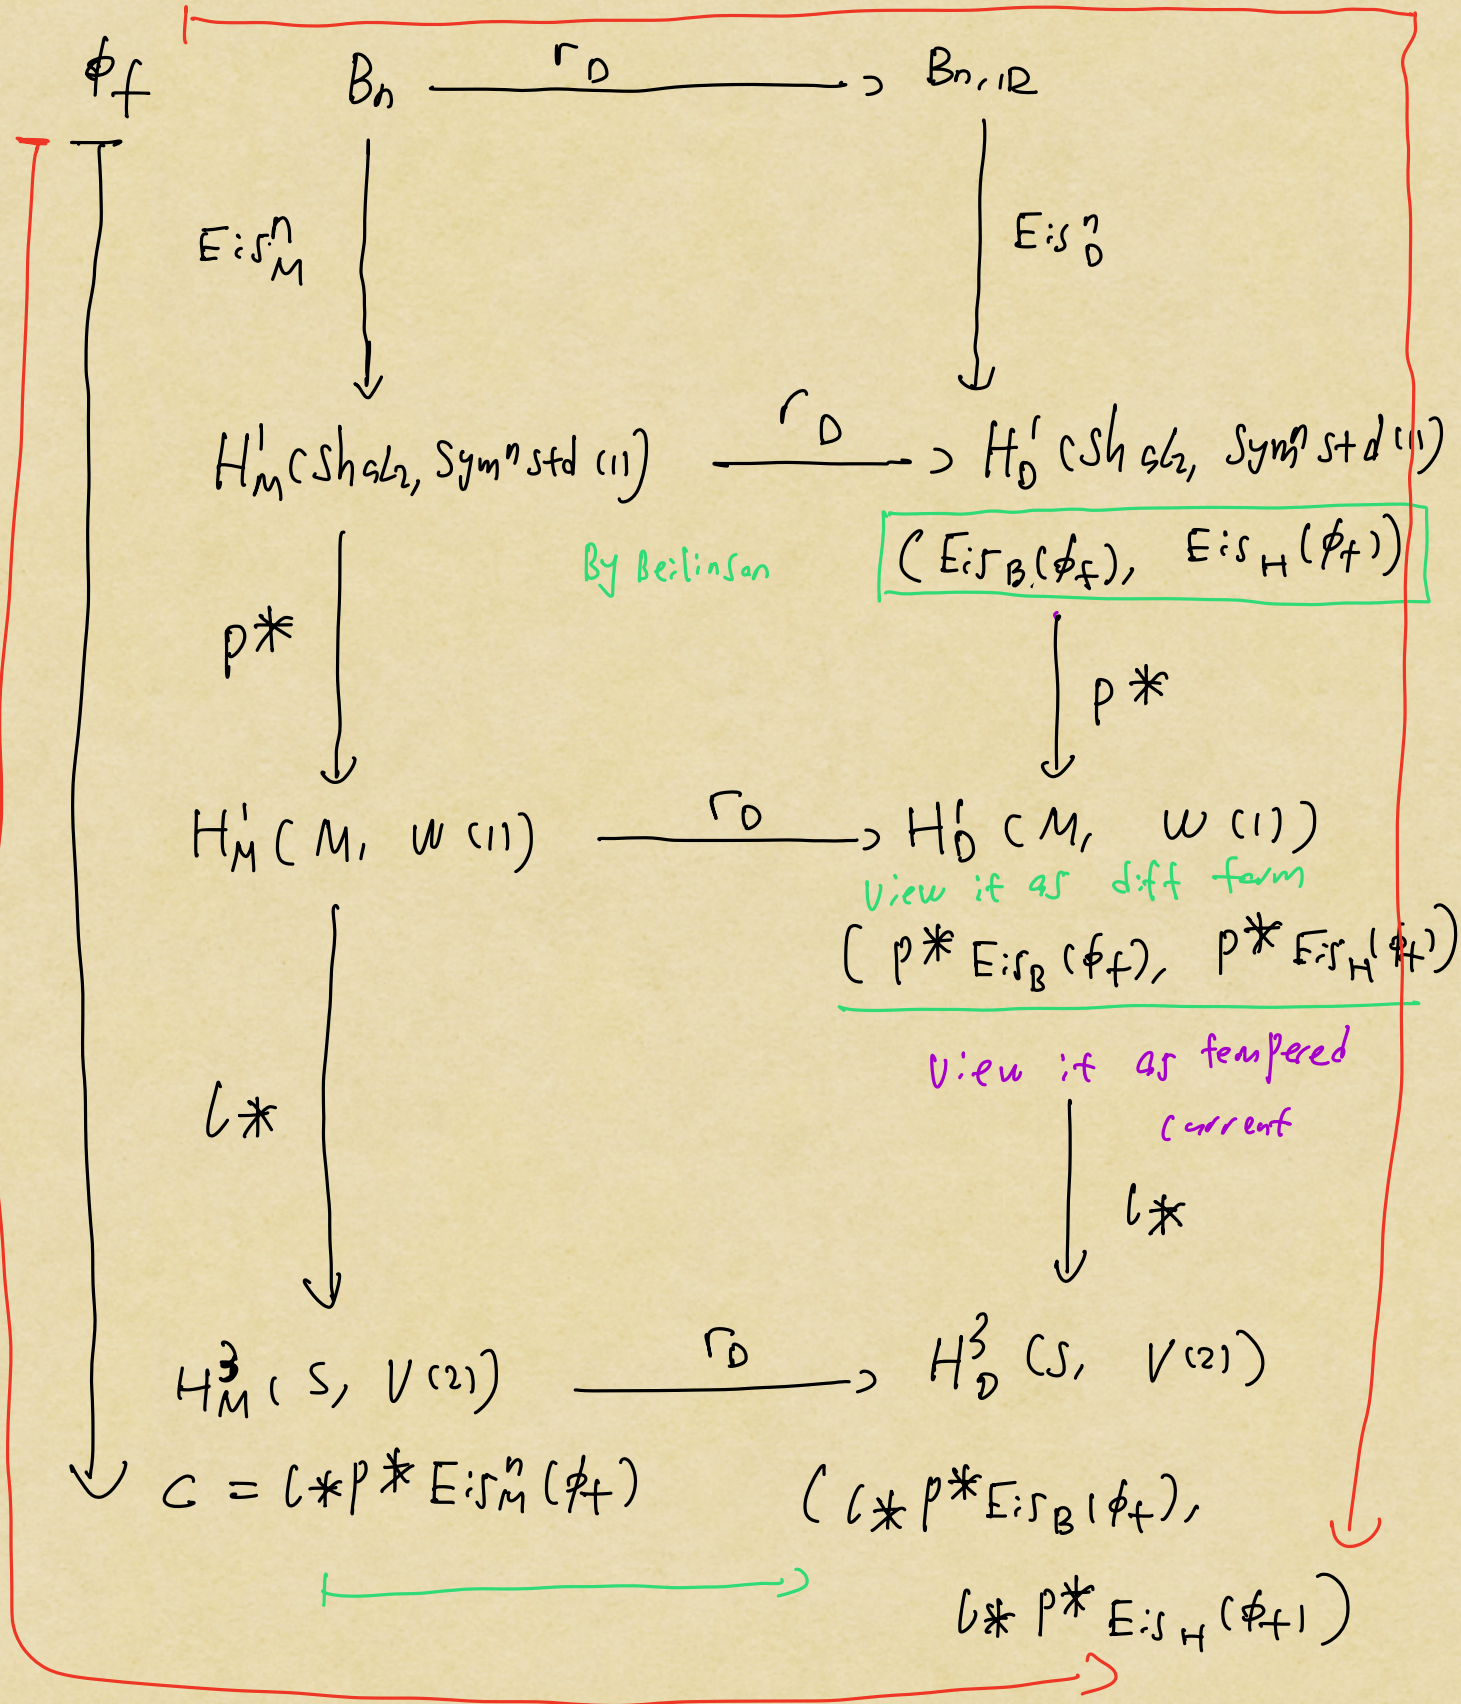 ϕ_f B_n r_D B_{n,ℝ}
Eis^n_M Eis^n_D
H^1_M (Sh_{GL_2}, Sym^n std (1)) r_D H^1_D (Sh_{GL_2}, Sym^n std (1))
By Beilinson (Eis_B(ϕ_f), Eis_H(ϕ_f))
p* p*
H^1_M (M, W(1)) r_D H^1_D (M, W(1))
View it as diff form
(p* Eis_B(ϕ_f), p* Eis_H(ϕ_f))
View it as tempered
current
ι_* ι_*
H^3_M (S, V(2)) r_D H^3_D (S, V(2))
C = ι_* p* Eis^n_M(ϕ_f) (ι_* p* Eis_B(ϕ_f),
ι_* p* Eis_H(ϕ_f))